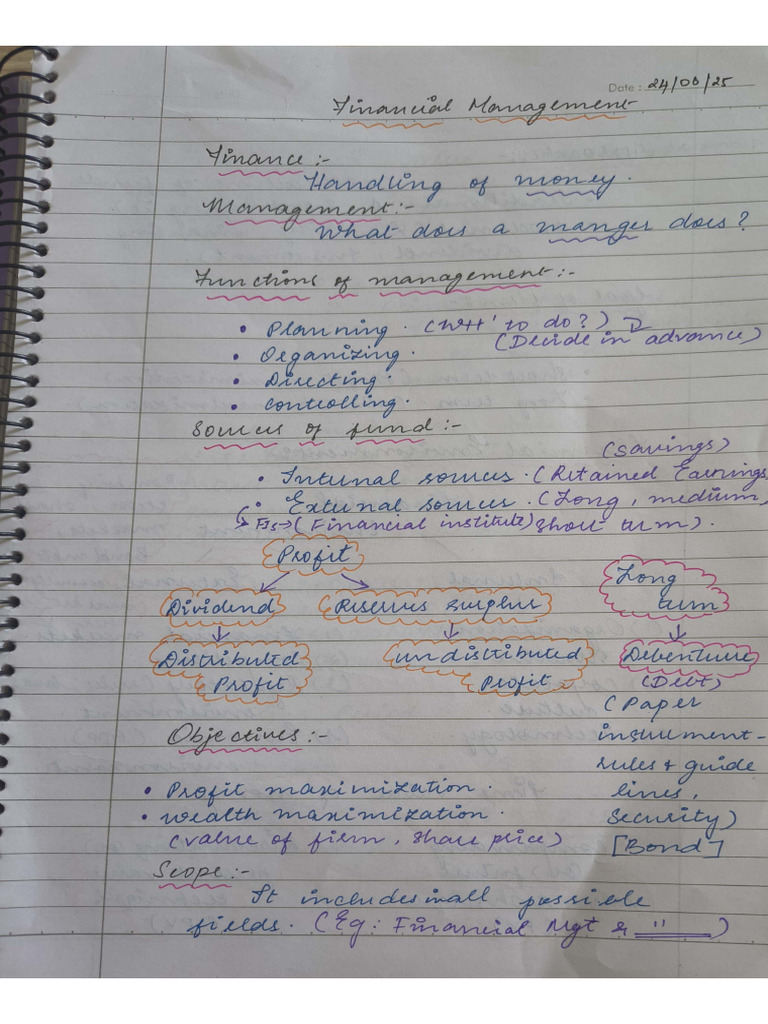 Date: 24/06/25
Financial Management
Finance :-
Handling of money.
Management :-
What does a manger does?
Functions of management :-
• Planning. (WH' to do?)
(Decide in advance)
• Organizing.
• Directing.
• Controlling.
Sources of fund :-
(Savings)
• Internal sources. (Retained Earnings
• External sources. (Long, medium,
FIs → (Financial institute) Short term).
Profit
Dividend
Reserves surplus
Long
term
Distributed
Profit
undistributed
Profit
Debenture
(Debt)
(Paper
instrument-
rules & guide
lines,
security)
[Bond]
Objectives :-
• Profit maximization.
• Wealth maximization.
(value of firm, Share price)
Scope :-
It includes in all possible
fields. (Eg: Financial Mgt & " )